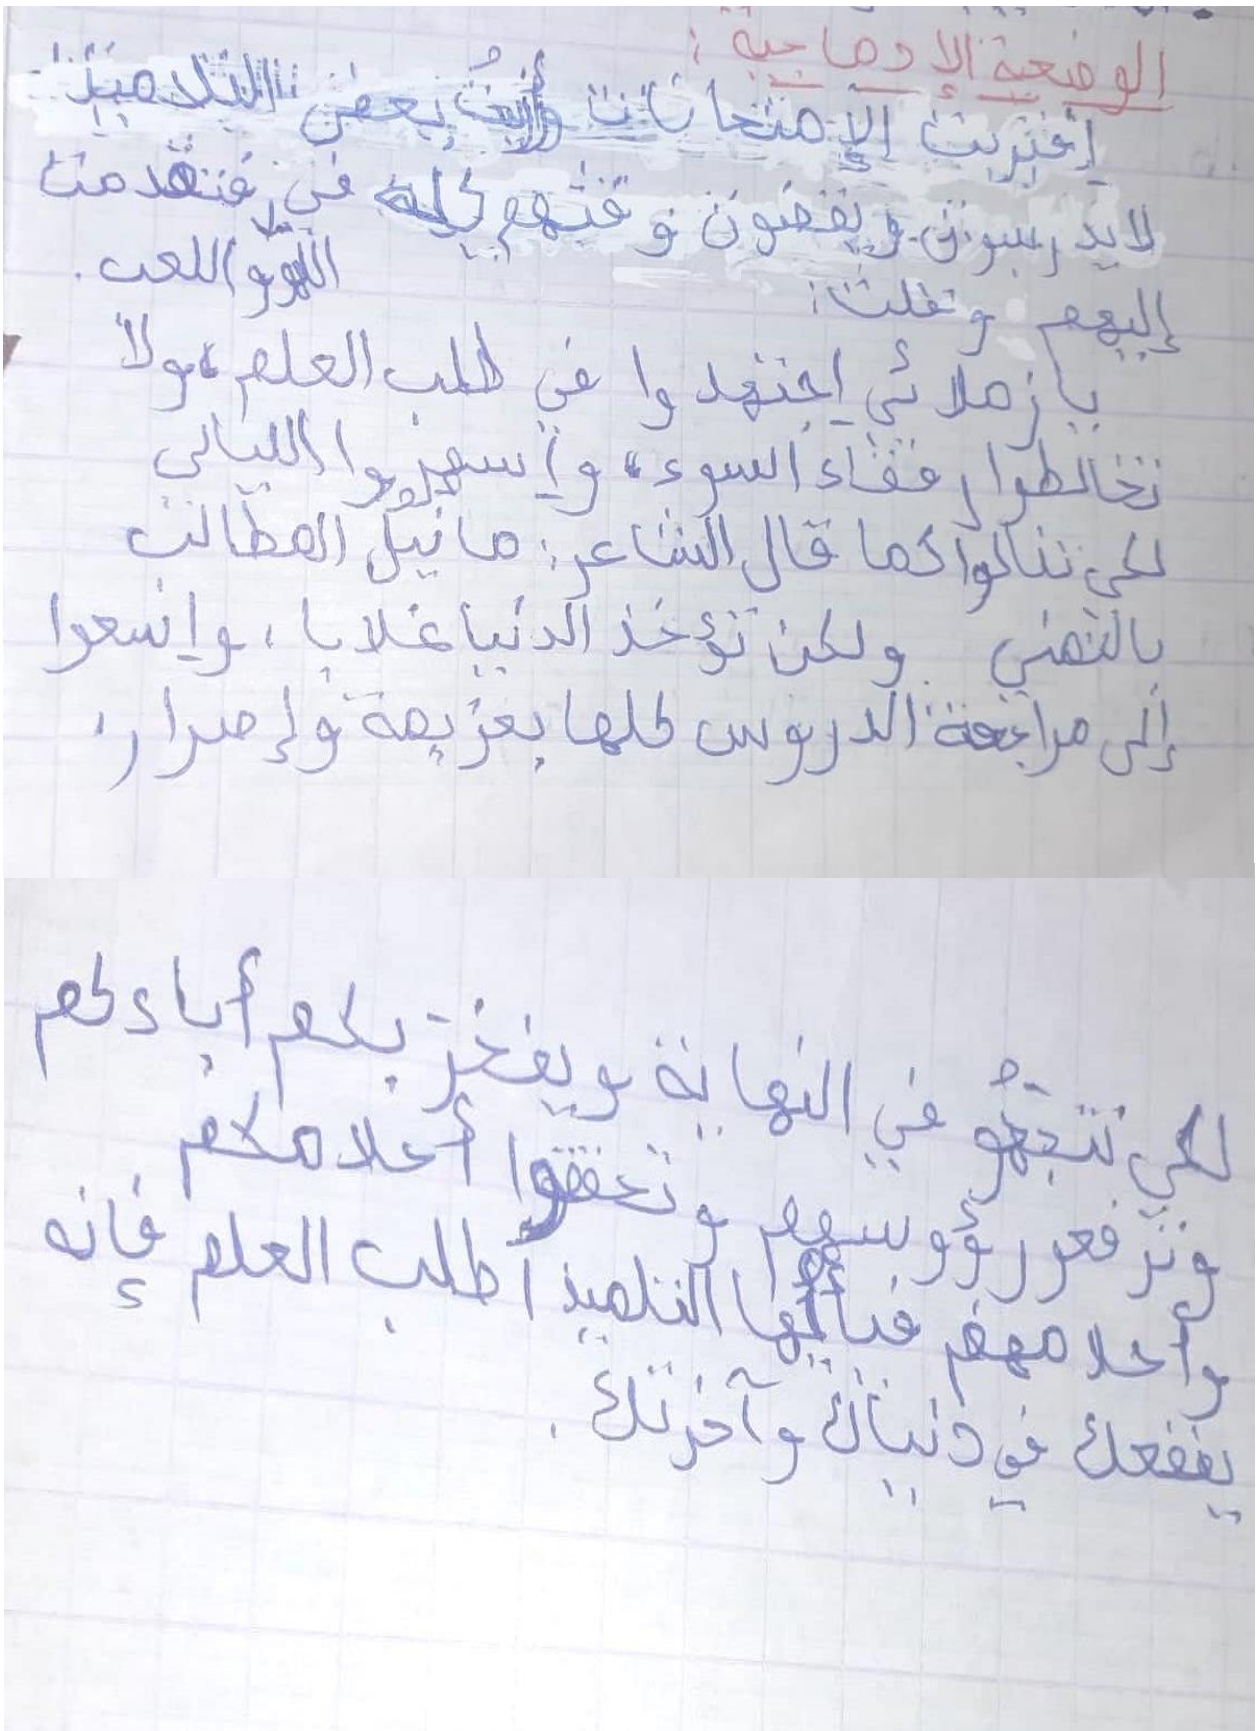 الوضعية الإدماجية :
إقتربت الإمتحانات رأيتُ بعض التلاميذ
لا يدرسون ويقضون وقتهم كله في فتقدمت
اللهو واللعب .
إليهم وقلت :
يا زملائي إجتهدوا في طلب العلم ، ولا
تخالطوا رفقاء السوء ، وإسهروا الليالي
لكي تنالوا كما قال الشاعر : ما نيل المطالب
بالتمني ولكن تؤخذ الدنيا غلابا ، وإسعوا
إلى مراجعة الدروس كلها بعزيمة وإصرار ،
لكي تنجحُو في النهاية ويفخر بكم أباءكم
وترفعو رؤوسهم وتحققوا أحلامكم
وأحلامهم فيا أيها التلميذ أطلب العلم فإنه
ينفعك في دنياك وآخرتك .